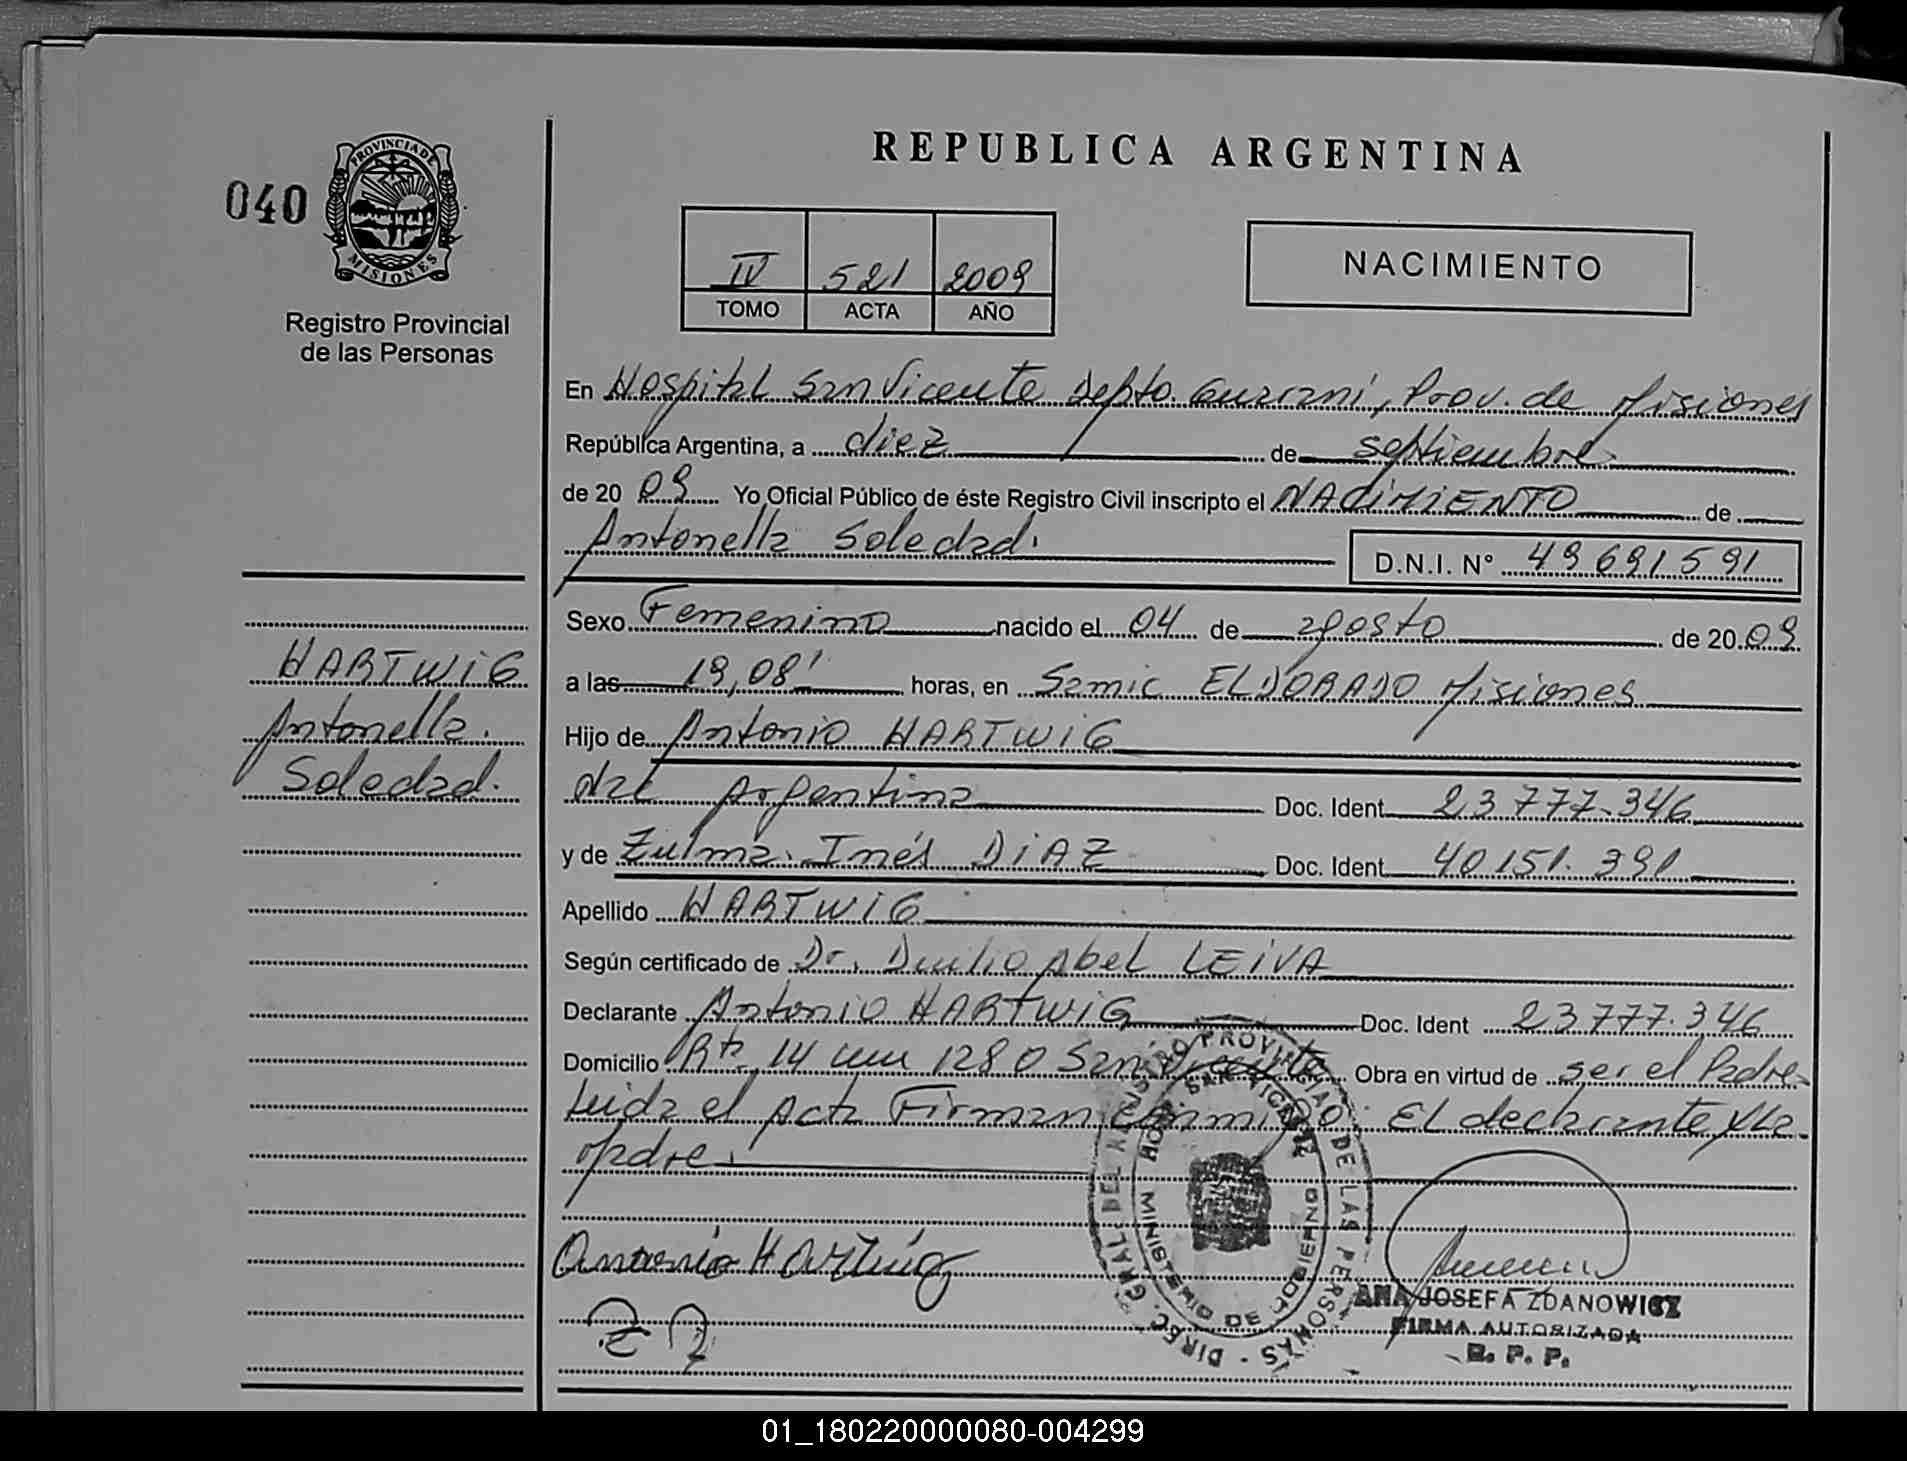 REPUBLICA ARGENTINA
040
PROVINCIA DE
MISIONES
Registro Provincial
de las Personas
IV 521 2009
TOMO ACTA AÑO
NACIMIENTO
En Hospital San Vicente Depto. Guaraní, Prov. de Misiones
República Argentina, a diez de septiembre
de 20 09 Yo Oficial Público de éste Registro Civil inscripto el NACIMIENTO de
Antonella Soledad.
D.N.I. N° 49691591
Sexo Femenino nacido el 04 de agosto de 20 09
a las 19,08' horas, en Samic ELDORADO Misiones
Hijo de Antonio HARTWIG
nac Argentina Doc. Ident 23777.346
y de Zulma Inés DIAZ Doc. Ident 40151.391
Apellido HARTWIG
Según certificado de Dr. Duilio Abel LEIVA
Declarante Antonio HARTWIG Doc. Ident 23777.346
Domicilio Rta. 14 km 1280 San Vicente Obra en virtud de ser el Padre
Leida el Acta Firman conmigo El declarante y la
Madre.
HARTWIG
Antonella
Soledad.
Antonio Hartwig
Z D
DIREC. GRAL DEL REGISTRO PROVINCIAL DE LAS PERSONAS
HOSP. SAN VICENTE
MINISTERIO DE GOBIERNO
ANA JOSEFA ZDANOWICZ
FIRMA AUTORIZADA
R. P. P.
01_180220000080-004299